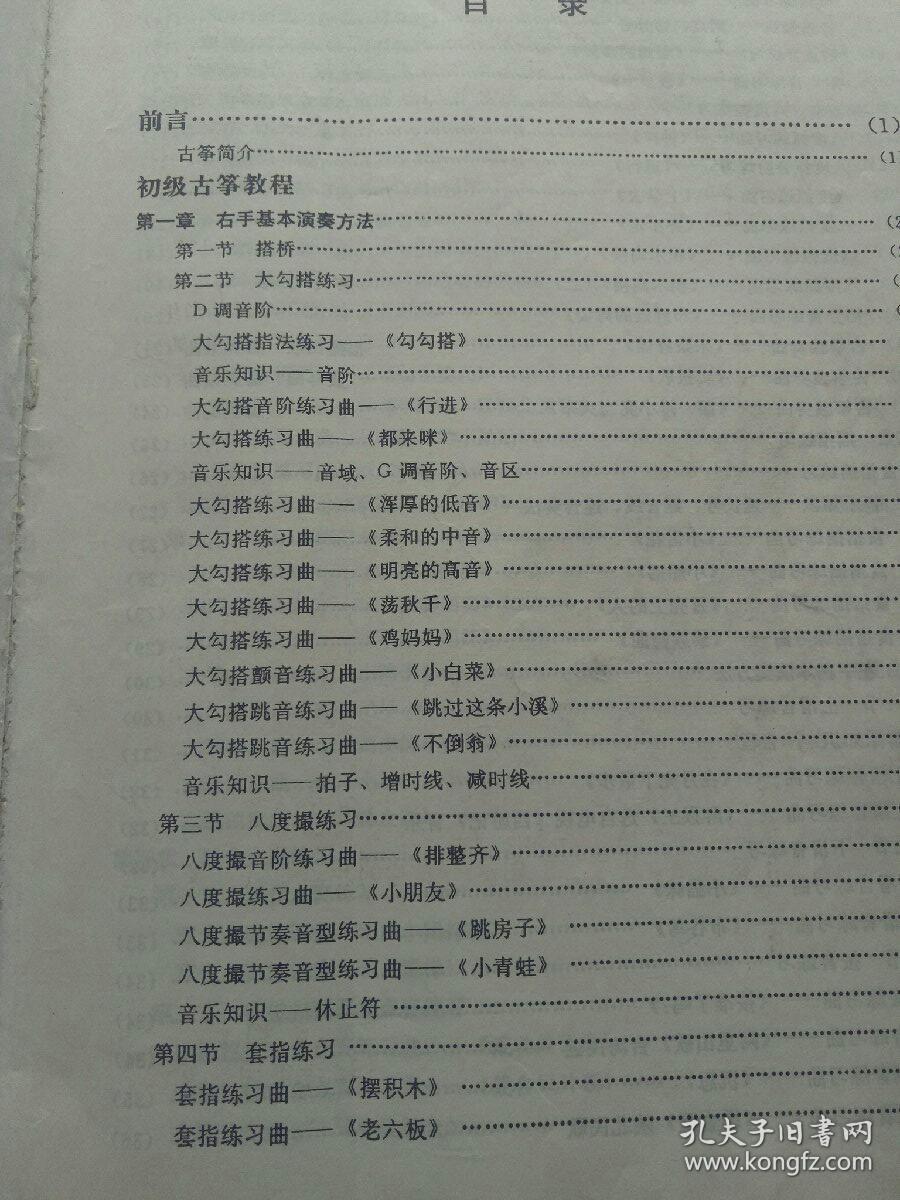 目 录
前言……………………………………………………(1)
古筝简介……………………………………………………(1
初级古筝教程
第一章 右手基本演奏方法……………………………………(2
第一节 搭桥……………………………………………(
第二节 大勾搭练习……………………………………………(
D 调音阶……………………………………………(
大勾搭指法练习——《勾勾搭》……………………………
音乐知识——音阶……………………………………
大勾搭音阶练习曲——《行进》……………………………
大勾搭练习曲——《都来咪》……………………………
音乐知识——音域、G 调音阶、音区……………………………
大勾搭练习曲——《浑厚的低音》……………………………
大勾搭练习曲——《柔和的中音》……………………………
大勾搭练习曲——《明亮的高音》……………………………
大勾搭练习曲——《荡秋千》……………………………
大勾搭练习曲——《鸡妈妈》……………………………
大勾搭颤音练习曲——《小白菜》……………………………
大勾搭跳音练习曲——《跳过这条小溪》……………………………
大勾搭跳音练习曲——《不倒翁》……………………………
音乐知识——拍子、增时线、减时线……………………………
第三节 八度撮练习……………………………………
八度撮音阶练习曲——《排整齐》……………………………
八度撮练习曲——《小朋友》……………………………
八度撮节奏音型练习曲——《跳房子》……………………………
八度撮节奏音型练习曲——《小青蛙》……………………………
音乐知识——休止符……………………………………
第四节 套指练习……………………………………
套指练习曲——《摆积木》……………………………
套指练习曲——《老六板》……………………………
孔夫子旧書网
www.kongfz.com